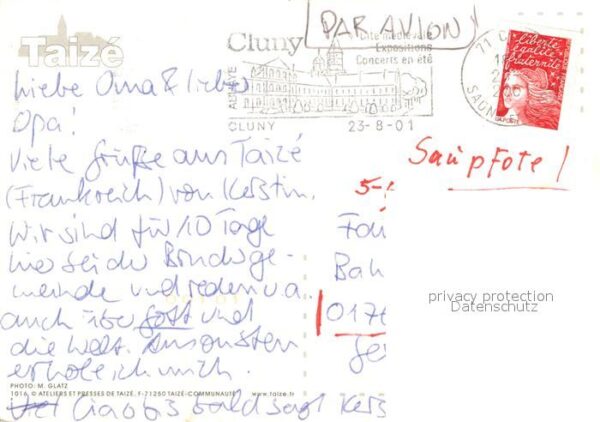 Taizé
liebe Oma & lieber
Opa!
Viele Grüße aus Taizé
(Frankreich) von Kerstin.
Wir sind für 10 Tage
hier bei der Bruderge-
meinde und reden u.a.
auch über Gott und
die Welt. Ansonsten
erhole ich mich.
PHOTO: M. GLATZ
1016 © ATELIERS ET PRESSES DE TAIZÉ, F-71250 TAIZÉ-COMMUNAUTÉ www.taize.fr
Ciao bis bald sagt Kers
PAR AVION
Cluny
Cité médiévale
Expositions
Concerts en été
ABBAYE
CLUNY 23-8-01
71 C
SAÔN
liberté
égalité
fraternité
LA POSTE
Saupfote!
5-
Bah
0176
privacy protection
Datenschutz